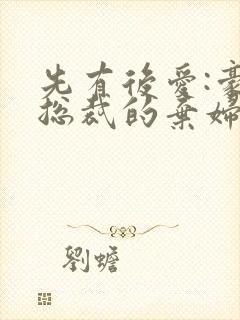 先有後愛:豪
總裁的棄婦
劉蟾